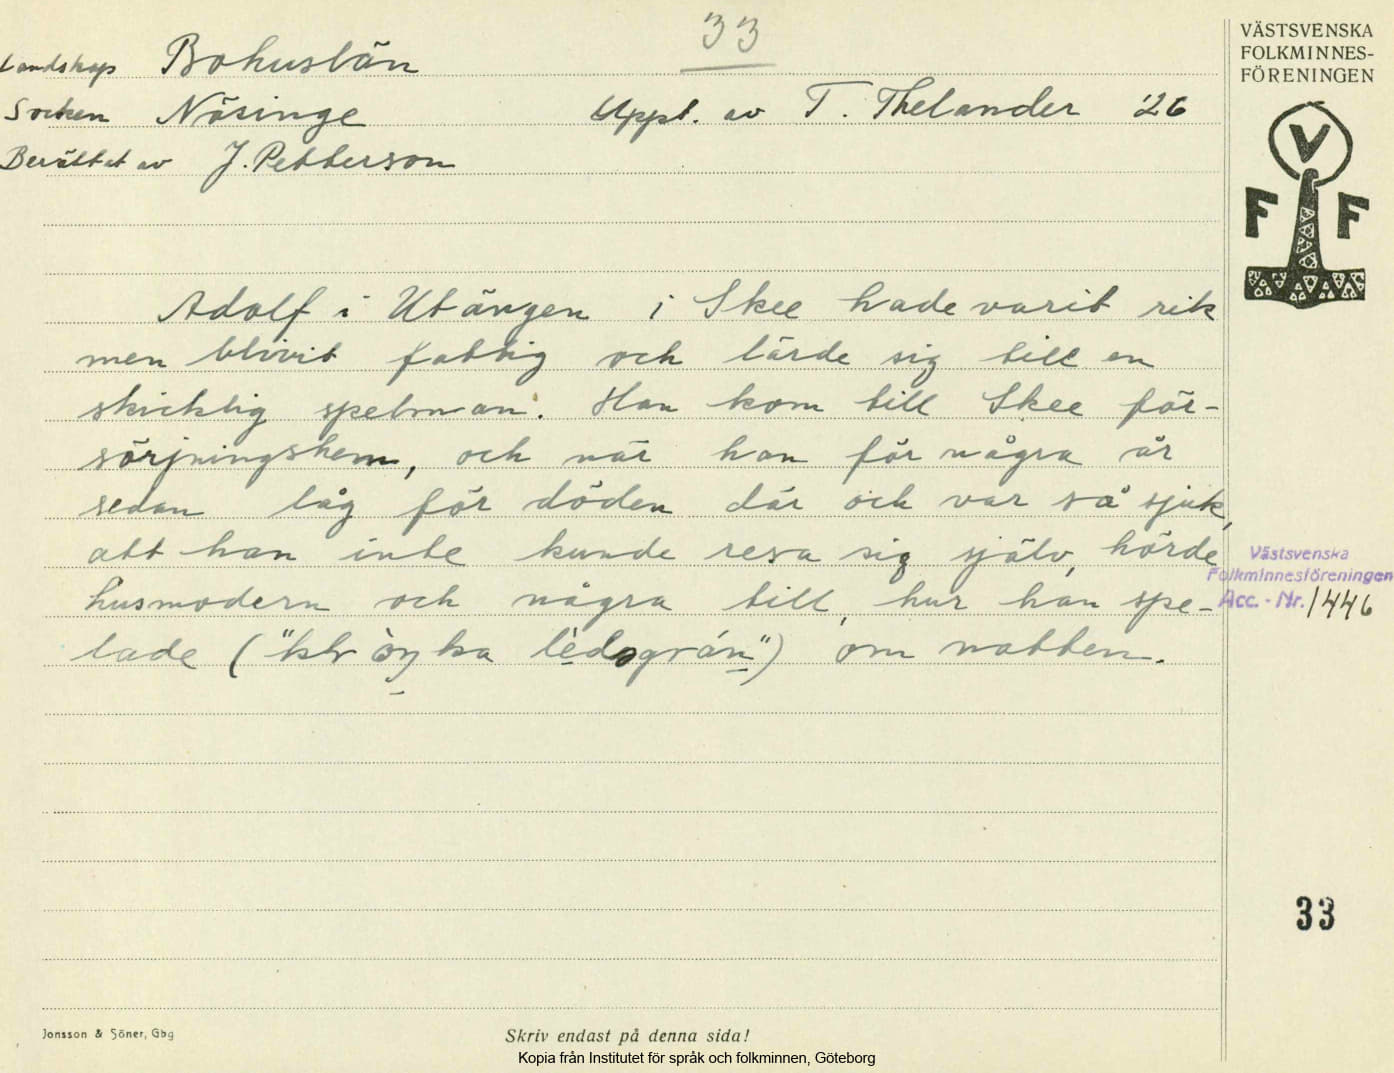 33
VÄSTSVENSKA
FOLKMINNES-
FÖRENINGEN
Landskap Bohuslän
Socken Näsinge Uppt. av T. Thelander '26
Berättat av J. Petterson
V
F F
Adolf i Utängen i Skee hade varit rik
men blivit fattig och lärde sig till en
skicklig spelman. Han kom till Skee för-
sörjningshem, och när han för några år
sedan låg för döden där och var så sjuk,
att han inte kunde resa sig själv, hörde
husmodern och några till, hur han spe-
lade ( ) om natten.
Västsvenska
Folkminnesföreningen
Acc. - Nr. 1446
33
Jonsson & Söner, Gbg
Skriv endast på denna sida!
Kopia från Institutet för språk och folkminnen, Göteborg